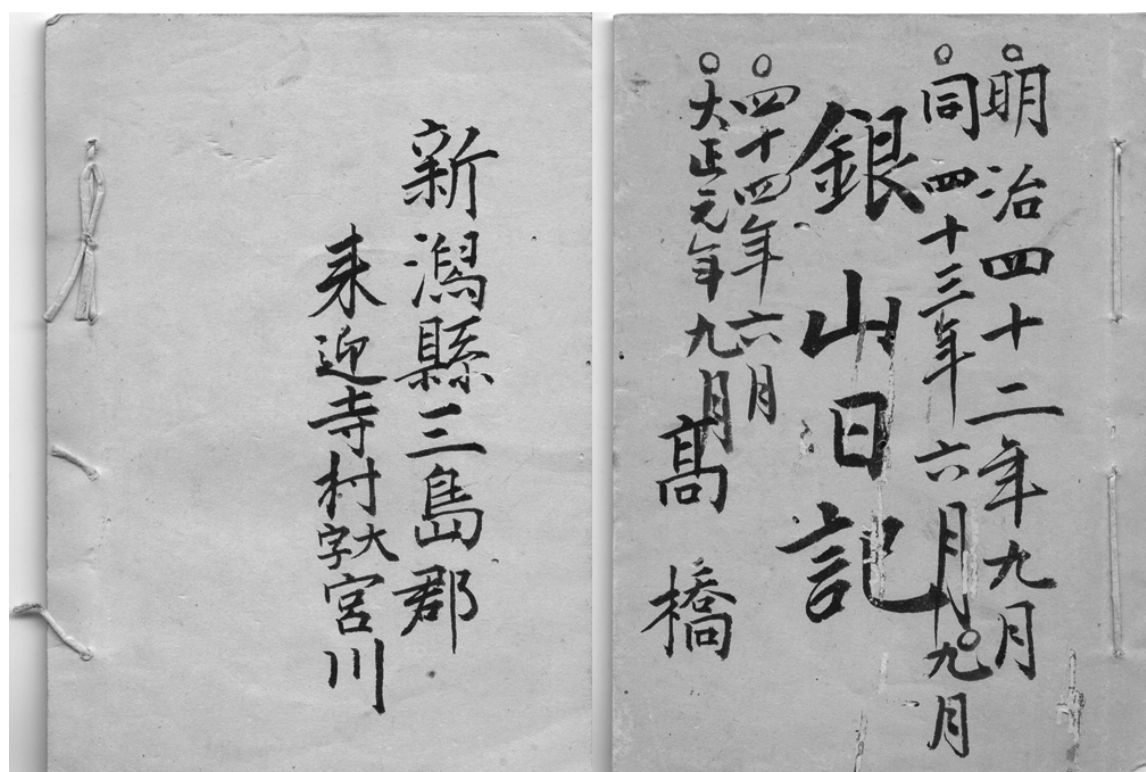 ○明治四十二年九月
○同四十三年六月○九月
銀山日記
○四十四年六月
○大正元年九月
髙橋
新潟縣三島郡
来迎寺村大字宮川